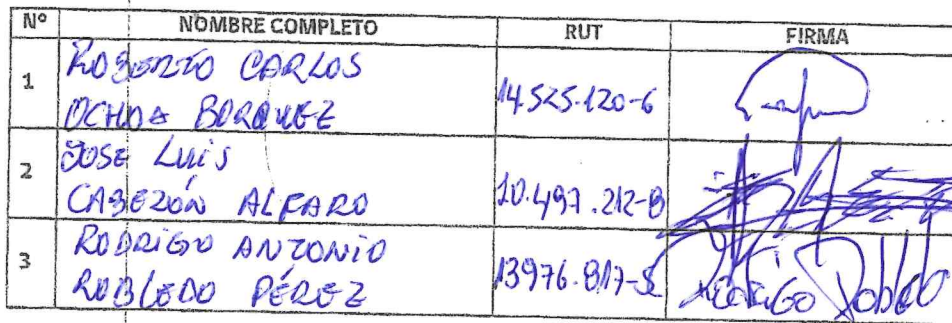 Nº NOMBRE COMPLETO RUT FIRMA
1 ROBERTO CARLOS
OCHOA BORQUEZ 14.525.120-6
2 JOSE LUIS
CABEZÓN ALFARO 10.497.212-8
3 RODRIGO ANTONIO
ROBLEDO PÉREZ 13976.817-5 Rodrigo Robledo